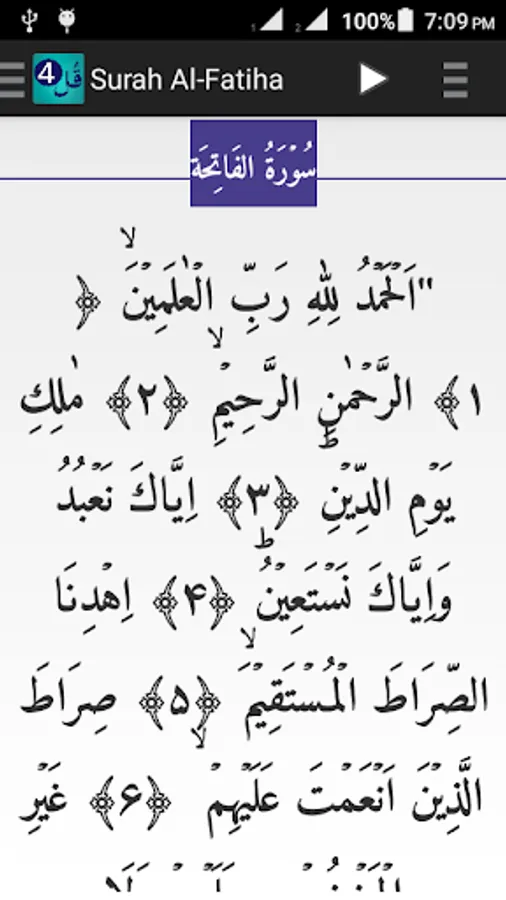 1 2 100% 7:09 PM
4 قُل Surah Al-Fatiha
سُوْرَةُ الفَاتِحَة
"اَلْحَمْدُ لِلّٰهِ رَبِّ الْعٰلَمِيْنَۙ ﴿
۱﴾ الرَّحْمٰنِ الرَّحِيْمِۙ ﴿۲﴾ مٰلِكِ
يَوْمِ الدِّيْنِؕ ﴿۳﴾ اِيَّاكَ نَعْبُدُ
وَاِيَّاكَ نَسْتَعِيْنُؕ ﴿۴﴾ اِهْدِنَا
الصِّرَاطَ الْمُسْتَقِيْمَۙ ﴿۵﴾ صِرَاطَ
الَّذِيْنَ اَنْعَمْتَ عَلَيْهِمْۙ ﴿۶﴾ غَيْرِ